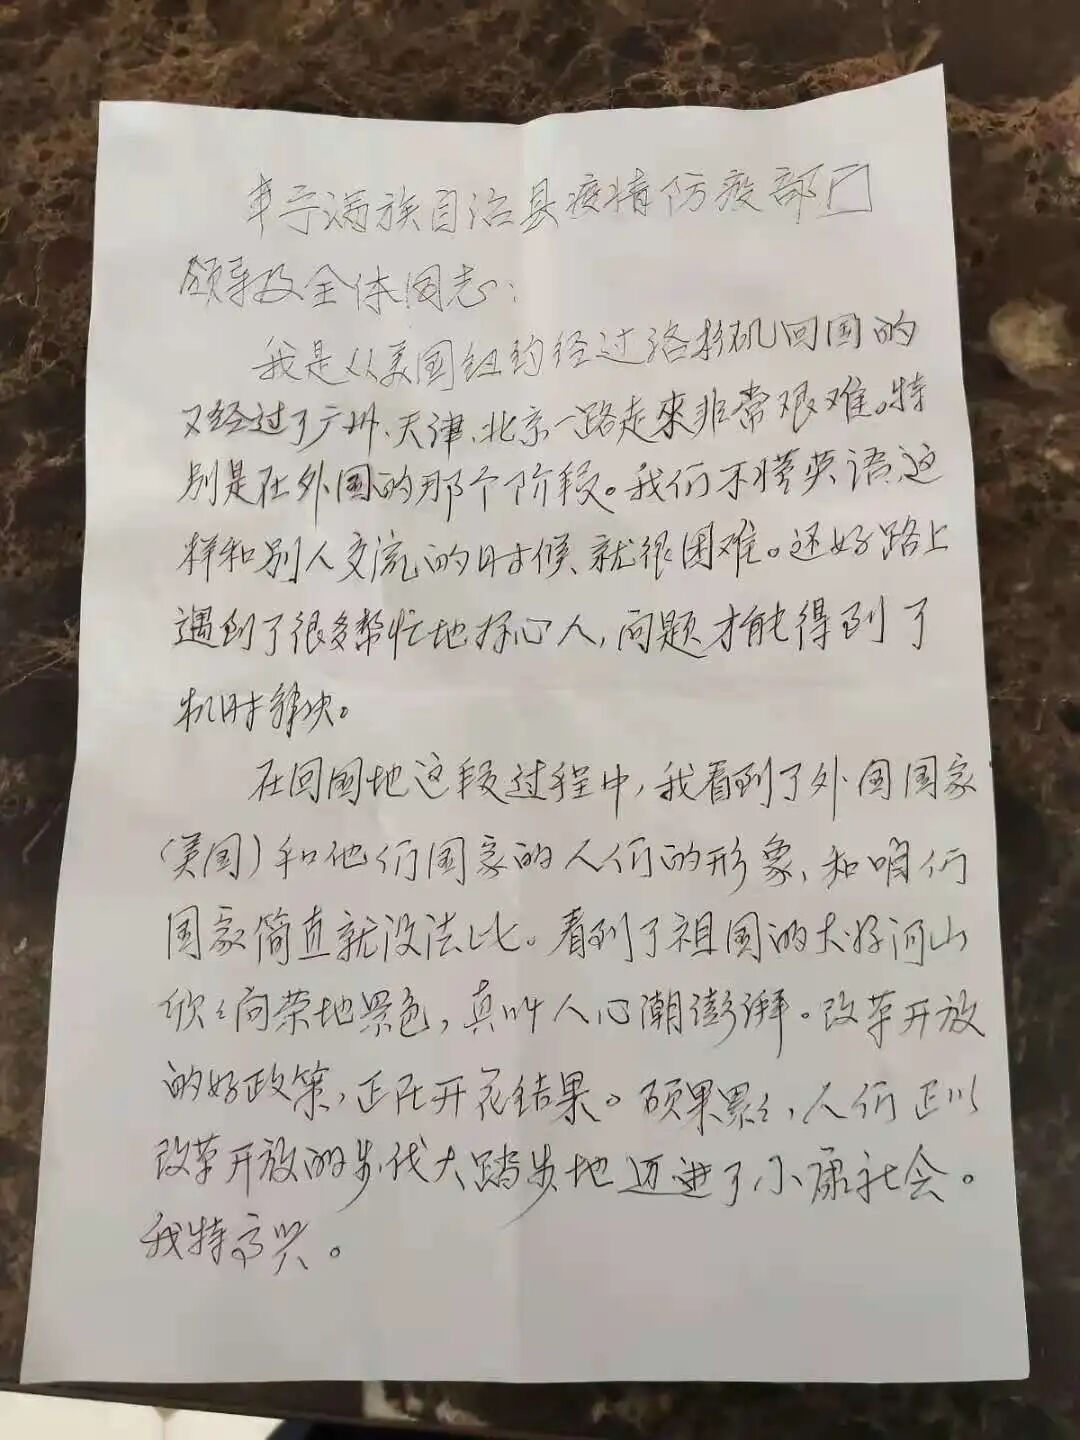 丰宁满族自治县疫情防疫部门
领导及全体同志：
我是从美国纽约经过洛杉矶回国的
又经过了广州、天津、北京一路走来非常艰难。特
别是在外国的那个阶段。我们不懂英语、这
样和别人交流的时候、就很困难。还好路上
遇到了很多帮忙地好心人，问题才能得到了
机时解决。
在回国地这段过程中，我看到了外国国家
（美国）和他们国家的人们的形象、和咱们
国家简直就没法比。看到了祖国的大好河山
欣々向荣地景色，真叫人心潮澎湃。改革开放
的好政策，正在开花结果。硕果累々，人们正以
改革开放的步伐大踏步地迈进了小康社会。
我特高兴。